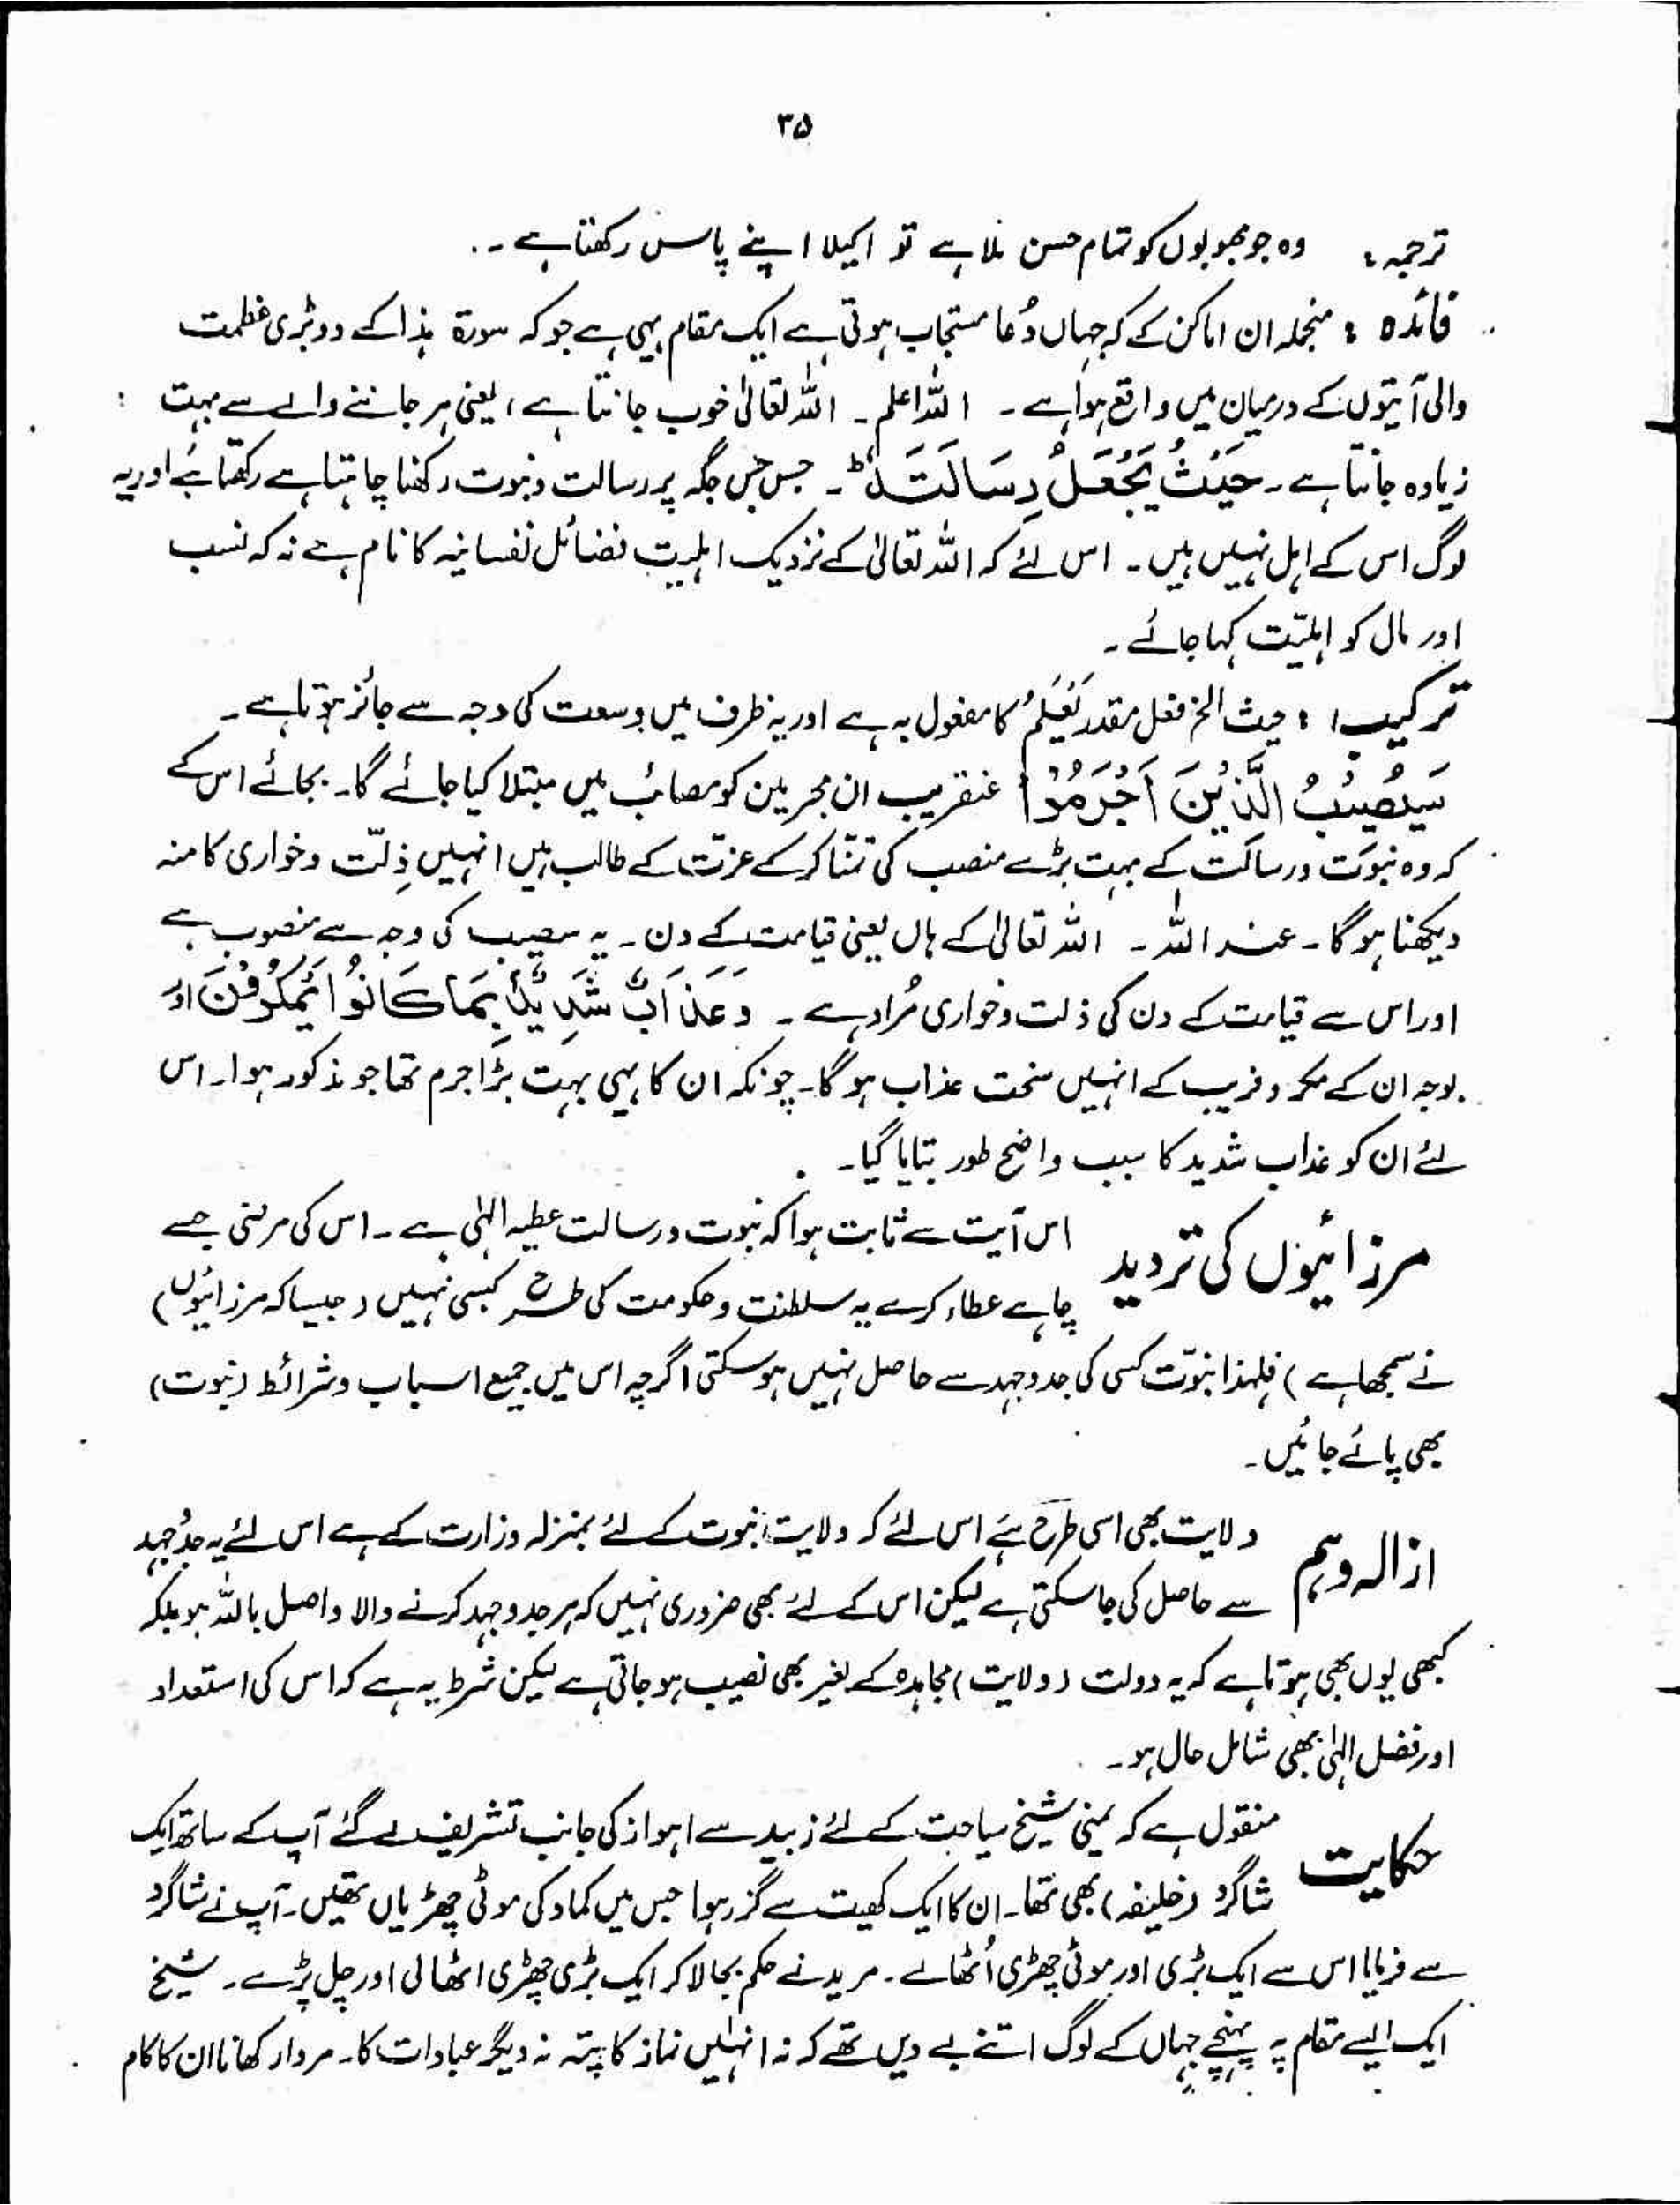 ۳۵
ترجمہ: وہ جو محبوبوں کو تمام حسن ملا ہے تو اکیلا اپنے پاس رکھتا ہے ۔
فائدہ : منجملہ ان اماکن کے کہ جہاں دُعا مستجاب ہوتی ہے ایک مقام یہی ہے جو کہ سورۃ ہذا کے دو بڑی عظمت
والی آیتوں کے درمیان میں واقع ہوا ہے ۔ اللہ اعلم ۔ اللہ تعالیٰ خوب جانتا ہے ، یعنی ہر جاننے والے سے بہت
زیادہ جانتا ہے ۔ حَيْثُ يَجْعَلُ رِسَالَتَهٗ ؕ ۔ جس جس جگہ پر رسالت و نبوت رکھنا چاہتا ہے رکھتا ہے اور یہ
لوگ اس کے اہل نہیں ہیں ۔ اس لئے کہ اللہ تعالیٰ کے نزدیک اہلیت فضائل نفسانیہ کا نام ہے نہ کہ نسب
اور مال کو اہلیّت کہا جائے ۔
ترکیب : حیث الخ فعل مقدر یَعْلَمُ کا مفعول بہ ہے اور یہ ظرف میں وسعت کی وجہ سے جائز ہوتا ہے ۔
سَيُصِيْبُ الَّذِيْنَ اَجْرَمُوْا عنقریب ان مجرمین کو مصائب میں مبتلا کیا جائے گا ۔ بجائے اس کے
کہ وہ نبوّت و رسالت کے بہت بڑے منصب کی تمنّا کر کے عزت کے طالب ہیں انہیں ذِلّت و خواری کا منہ
دیکھنا ہو گا ۔ عند اللہ ۔ اللہ تعالیٰ کے ہاں یعنی قیامت کے دن ۔ یہ سیصیب کی وجہ سے منصوب ہے
اور اس سے قیامت کے دن کی ذلت و خواری مُراد ہے ۔ وَعَذَابٌ شَدِيْدٌۢ بِمَا كَانُوْا يَمْكُرُوْنَ اور
بوجہ ان کے مکر و فریب کے انہیں سخت عذاب ہو گا ۔ چونکہ ان کا یہی بہت بڑا جرم تھا جو مذکور ہوا ۔ اس
لئے ان کو عذاب شدید کا سبب واضح طور بتایا گیا ۔
مرزائیوں کی تردید اس آیت سے ثابت ہوا کہ نبوت و رسالت عطیہ الہٰی ہے ۔ اس کی مرضی جسے
چاہے عطاء کرے یہ سلطنت و حکومت کی طرح کسبی نہیں (جیسا کہ مرزائیوں)
نے سمجھا ہے ) فلہٰذا نبوّت کسی کی جدوجہد سے حاصل نہیں ہو سکتی اگرچہ اس میں جمیع اسباب و شرائط (نبوت)
بھی پائے جائیں ۔
ازالہ وہم ولایت بھی اسی طرح ہے اس لئے کہ ولایت نبوت کے لئے بمنزلہ وزارت کے ہے اس لئے یہ جدوجہد
سے حاصل کی جا سکتی ہے لیکن اس کے لئے بھی ضروری نہیں کہ ہر جدوجہد کرنے والا واصل باللہ ہو بلکہ
کبھی یوں بھی ہوتا ہے کہ یہ دولت (ولایت) مجاہدہ کے بغیر بھی نصیب ہو جاتی ہے لیکن شرط یہ ہے کہ اس کی استعداد
اور فضل الہٰی بھی شامل حال ہو ۔
حکایت منقول ہے کہ یمنی شیخ سیاحت کے لئے زبید سے اہواز کی جانب تشریف لے گئے آپ کے ساتھ ایک
شاگرد (خلیفہ) بھی تھا ۔ ان کا ایک کھیت سے گزر ہوا جس میں کماد کی موٹی چھڑیاں تھیں ۔ آپ نے شاگرد
سے فرمایا اس سے ایک بڑی اور موٹی چھڑی اُٹھالے ۔ مرید نے حکم بجا لا کر ایک بڑی چھڑی اٹھا لی اور چل پڑے ۔ شیخ
ایک ایسے مقام پہ پہنچے جہاں کے لوگ اتنے بے دیں تھے کہ نہ انہیں نماز کا پتہ نہ دیگر عبادات کا ۔ مردار کھانا ان کا کام